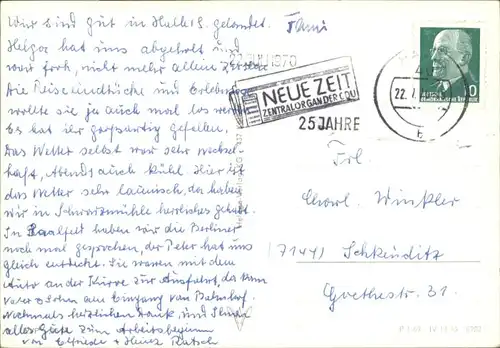 Wir sind gut in Halle/S. gelandet.
Helga hat uns abgeholt und
war froh, nicht mehr allein zu sein.
Die Reiseeindrücke und Erlebnisse
wollte sie ja auch mal los werden.
Es hat ihr großartig gefallen.
Das Wetter selbst war sehr wechsel-
haft, Abends auch kühl. Hier ist
das Wetter sehr launisch, da haben
wir in Schwarzmühle herrliches gehabt.
In Saalfeld haben wir die Berliner
noch mal gesprochen, der Peter hat uns
gleich entdeckt. Sie waren mit dem
Auto an der Kurve zur Ausfahrt, da kam
Vater + Sohn am Eingang vom Bahnhof.
Nochmals herzlichen Dank, und Ihnen
alles Gute zum Arbeitsbeginn
von Elfriede + Heinz
1970
NEUE ZEIT
ZENTRALORGAN DER CDU
25 JAHRE
22.7.
b
10
Frl.
Charl. Winkler
(7144) Schkeuditz
Goethestr. 31.